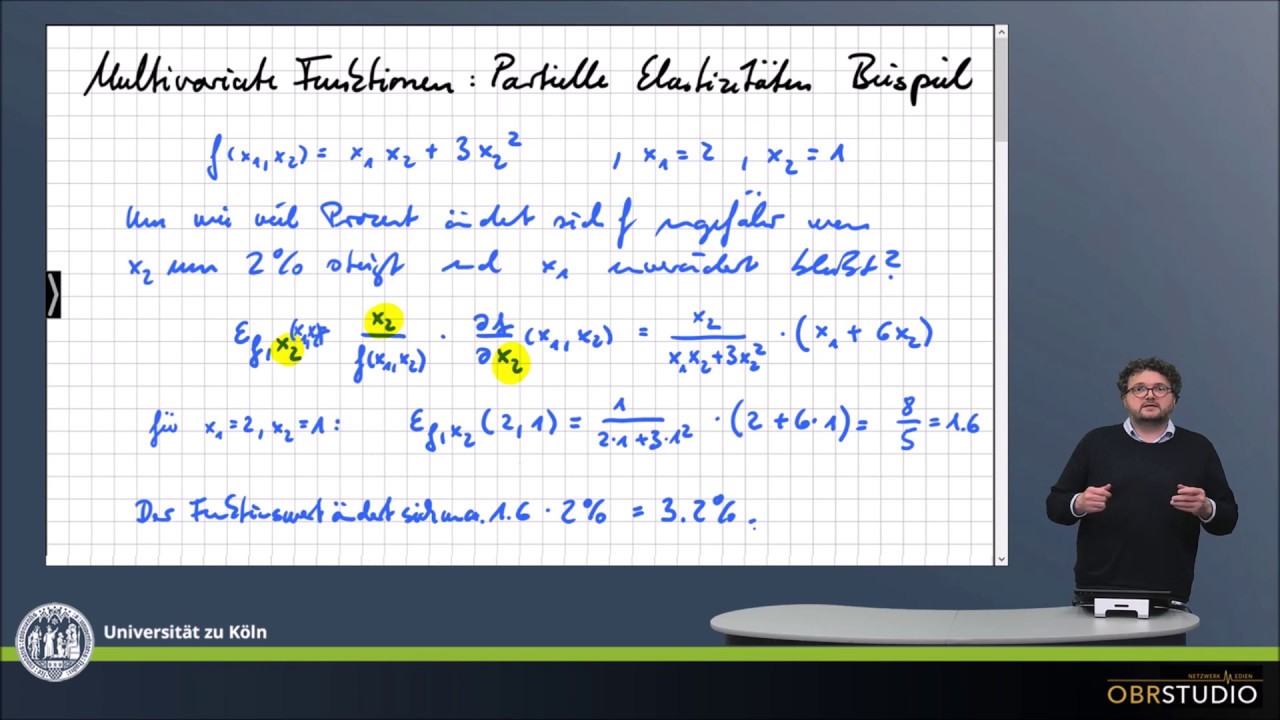 Multivariate Funktionen: Partielle Elastizitäten Beispiel
f(x₁,x₂) = x₁ x₂ + 3x₂² , x₁ = 2 , x₂ = 1
Um wie viel Prozent ändert sich f ungefähr wenn
x₂ um 2% steigt und x₁ unverändert bleibt?
ε_{f,x₂}(x₁,x₂) = x₂/f(x₁,x₂) · ∂f/∂x₂ (x₁,x₂) = x₂/(x₁x₂+3x₂²) · (x₁ + 6x₂)
für x₁=2, x₂=1: ε_{f,x₂}(2,1) = 1/(2·1+3·1²) · (2+6·1) = 8/5 = 1.6
Der Funktionswert ändert sich um ca. 1.6 · 2% = 3.2%.
Universität zu Köln
NETZWERK MEDIEN
OBRSTUDIO